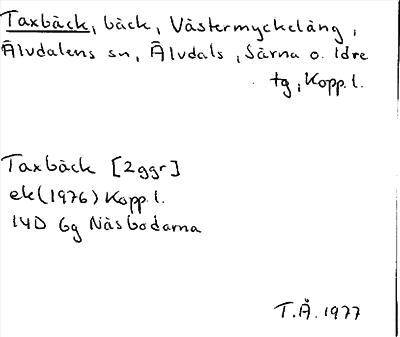 Taxbäck, bäck, Västermyckeläng,
Älvdalens sn, Älvdals, Särna o. Idre
tg, Kopp. l.
Taxbäck [2ggr]
ek (1976) Kopp. l.
14D 6g Näsbodarna
T.Å. 1977